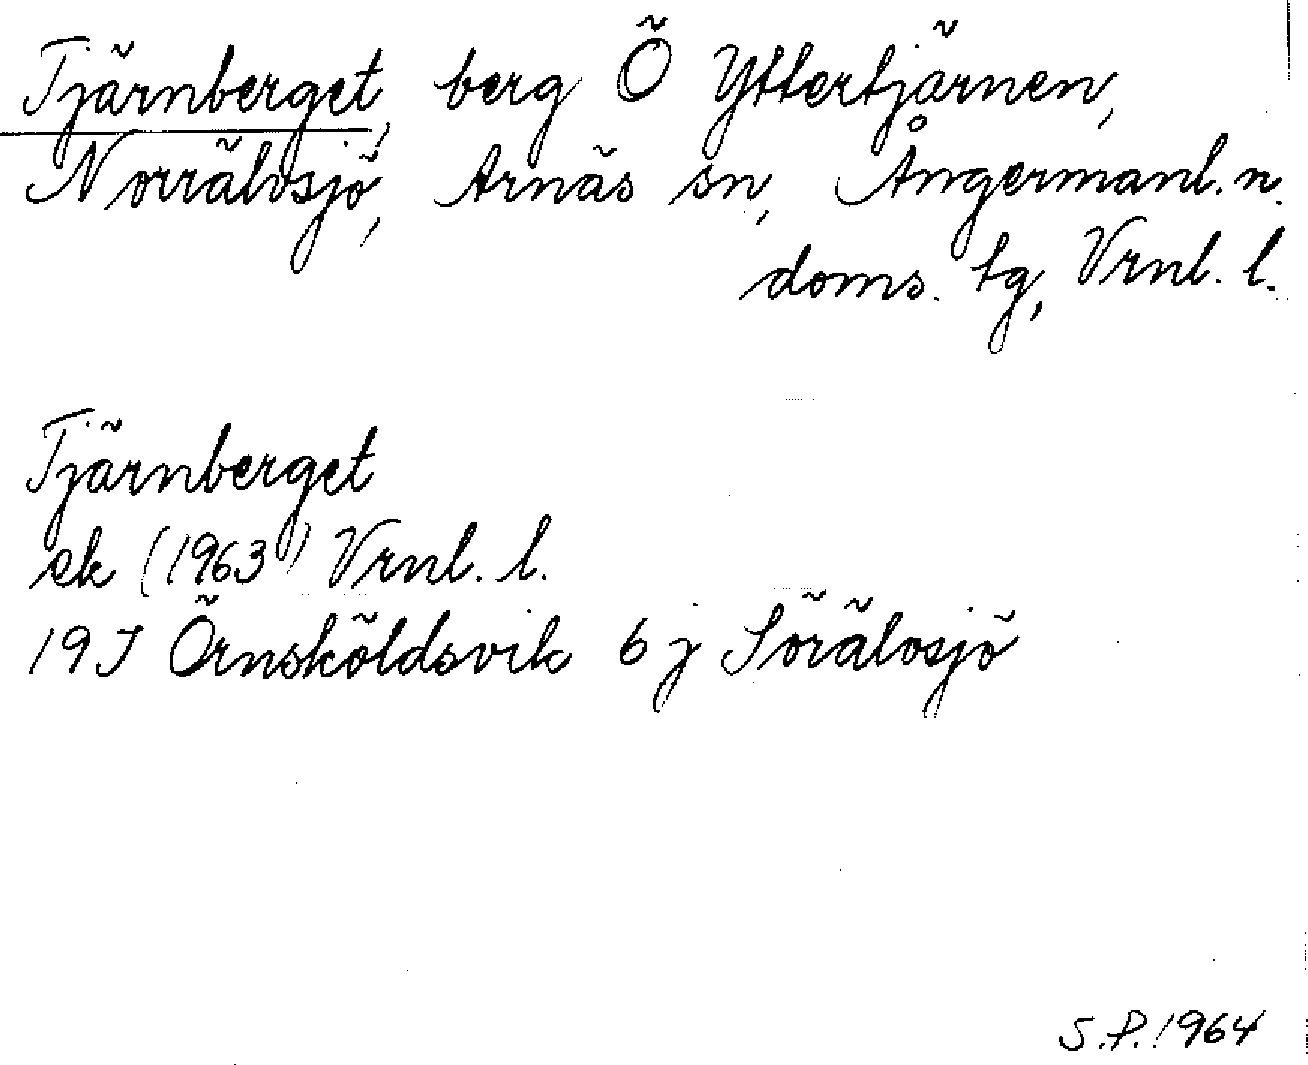 Tjärnberget, berg Ö Yttertjärnen,
Norrälvsjö, Arnäs sn, Ångermanl. n.
doms. tg, Vrnl. l.
Tjärnberget
ek (1963) Vrnl. l.
19J Örnsköldsvik 6 j Sörälvsjö
S.P. 1964